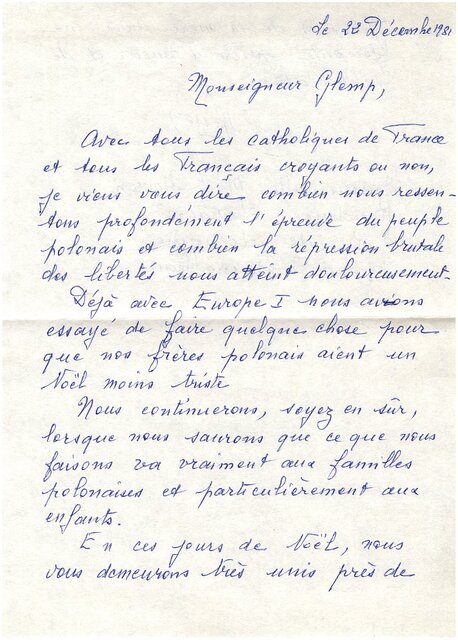 Le 22 Décembre 1981
Monseigneur Glemp,
Avec tous les catholiques de France
et tous les Français croyants ou non,
je viens vous dire combien nous ressen-
tons profondément l'épreuve du peuple
polonais et combien la répression brutale
des libertés nous atteint douloureusement.
Déjà avec Europe I nous avions
essayé de faire quelque chose pour
que nos frères polonais aient un
Noël moins triste
Nous continuerons, soyez en sûr,
lorsque nous saurons que ce que nous
faisons va vraiment aux familles
polonaises et particulièrement aux
enfants.
En ces jours de Noël, nous
vous demeurons très unis près de